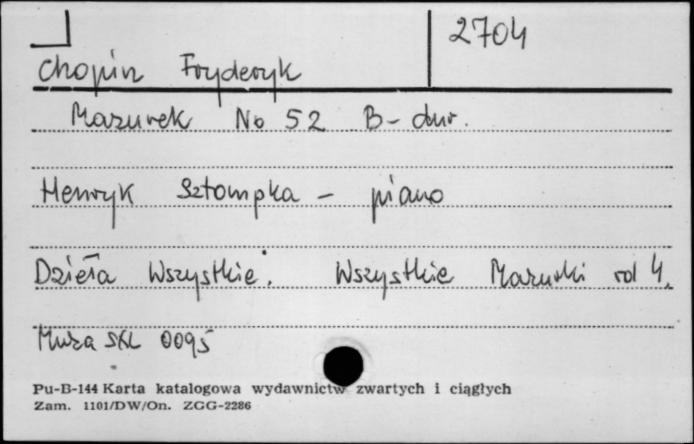 2704
Chopin Fryderyk
Mazurek No 52 B-dur.
Henryk Sztompka - piano
Dzieła Wszystkie. Wszystkie Mazurki vol 4.
Muza SXL 0095
Pu-B-144 Karta katalogowa wydawnictw zwartych i ciągłych
Zam. 1101/DW/On. ZGG-2286